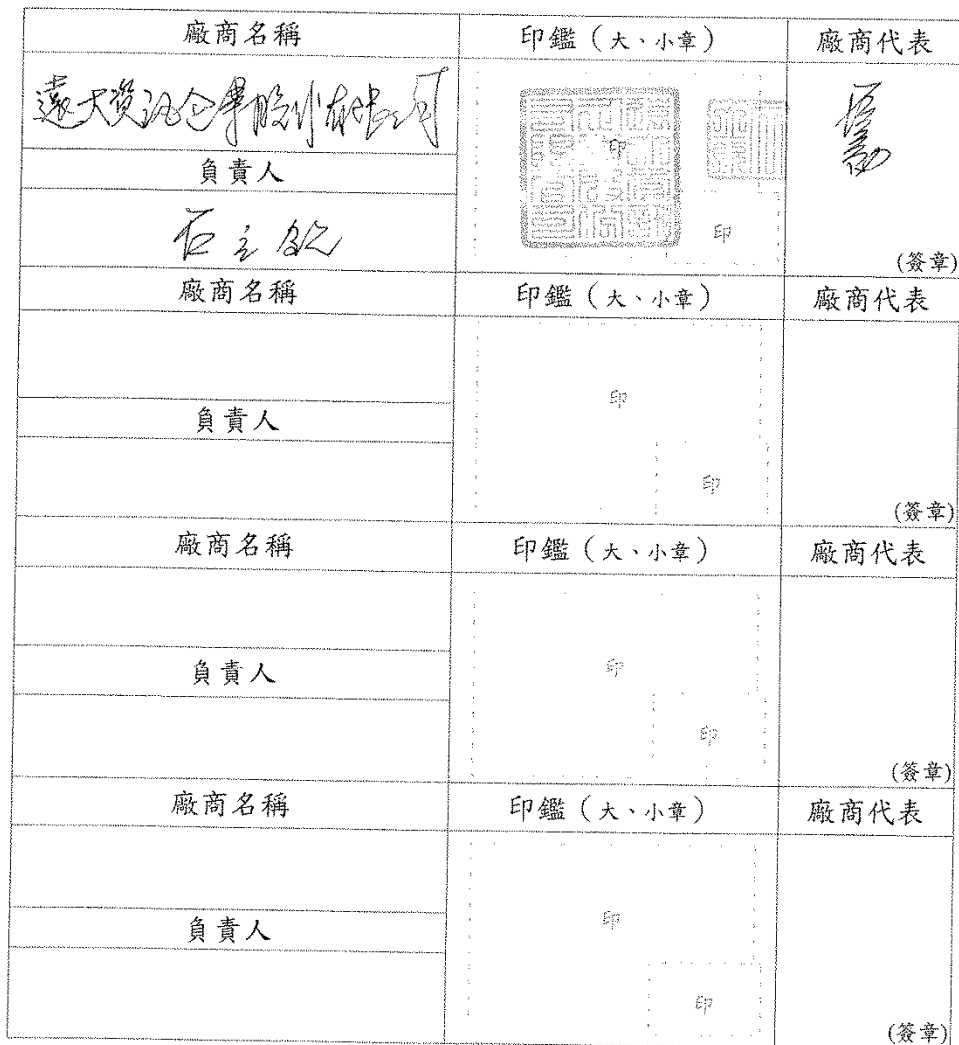 廠商名稱 印鑑（大、小章） 廠商代表
遠大資訊企業股份有限公司
印
負責人
石
印
(簽章)
廠商名稱 印鑑（大、小章） 廠商代表
印
負責人
印
(簽章)
廠商名稱 印鑑（大、小章） 廠商代表
印
負責人
印
(簽章)
廠商名稱 印鑑（大、小章） 廠商代表
印
負責人
印
(簽章)